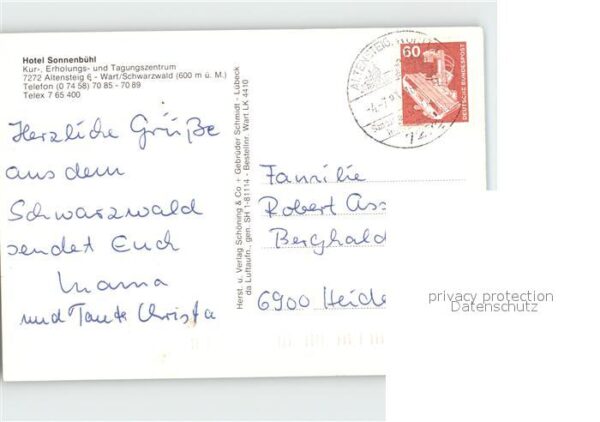 Hotel Sonnenbühl
Kur-, Erholungs- und Tagungszentrum
7272 Altensteig 6 - Wart/Schwarzwald (600 m ü. M.)
Telefon (0 74 58) 70 85 - 70 89
Telex 7 65 400
Herzliche Grüße
aus dem
Schwarzwald
sendet Euch
Mama
und Tante Christa
Herst. u. Verlag Schöning & Co + Gebrüder Schmidt - Lübeck
da Luftaufn., gen. SH 1-81114 - Bestellnr. Wart LK 4410
ALTENSTEIG
60
DEUTSCHE BUNDESPOST
Familie
Robert Ass
Berghald
6900 Heide
privacy protection
Datenschutz